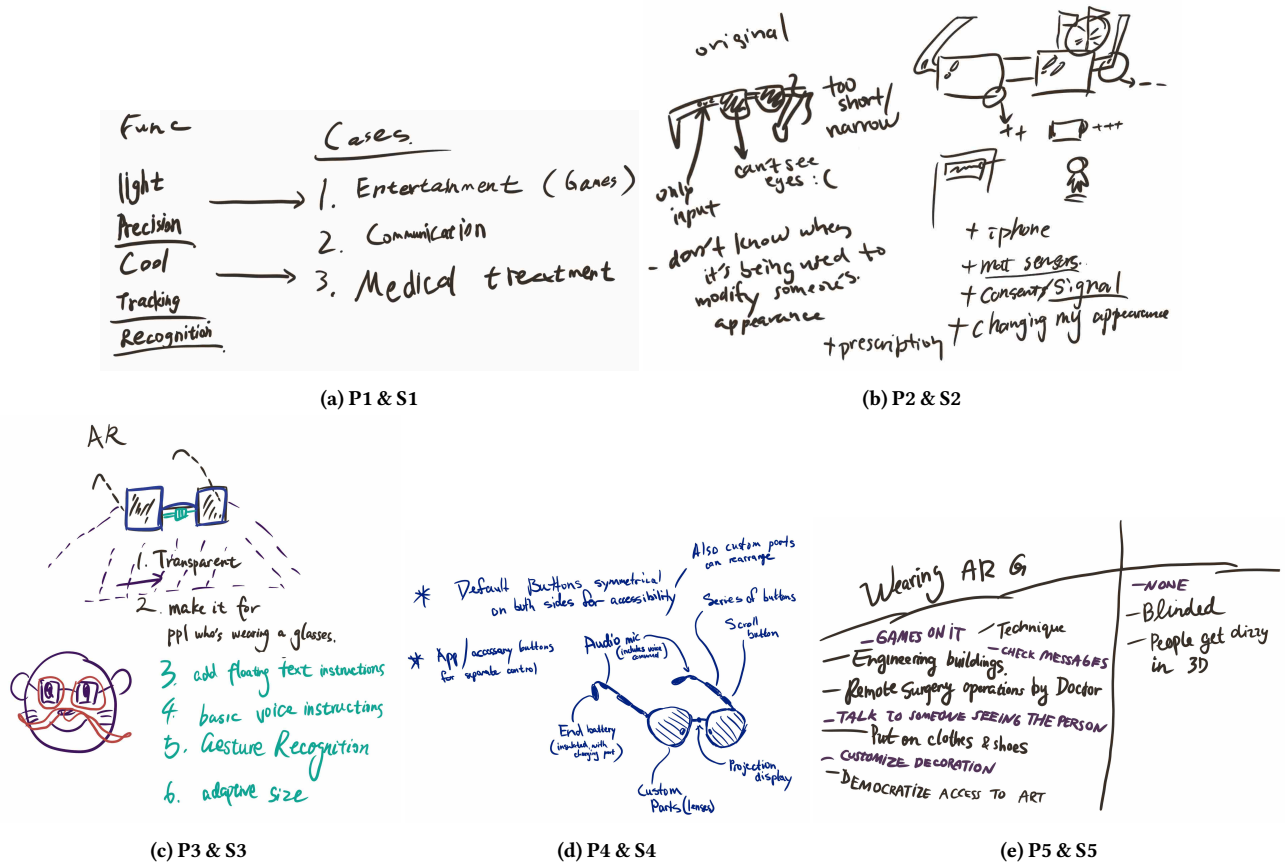 Func
light
Precision
Cool
Tracking
Recognition
Cases.
1. Entertainment (Games)
2. Communication
3. Medical treatment
(a) P1 & S1
original
too
short/
narrow
can't see
eyes :(
only
input
- don't know when
it's being used to
modify someone's
appearance
++
--
+++
+ iphone
+ sensors
+ consent/signal
+ changing my appearance
+ prescription
(b) P2 & S2
AR
1. Transparent
2. make it for
ppl who's wearing a glasses.
3. add floating text instructions
4. basic voice instructions
5. Gesture Recognition
6. adaptive size
(c) P3 & S3
Also custom ports
can rearrange
* Default Buttons symmetrical
on both sides for accessibility
Series of buttons
Scroll
button
* App/accessary buttons
for separate control
Audio mic
(includes voice
command)
End battery
(insulated with
charging port)
Projection
display
Custom
Parts (lenses)
(d) P4 & S4
Wearing AR G
- GAMES ON IT
- Technique
- CHECK MESSAGES
- Engineering buildings.
- Remote Surgery operations by Doctor
- TALK TO SOMEONE SEEING THE PERSON
- Put on clothes & shoes
- CUSTOMIZE DECORATION
- DEMOCRATIZE ACCESS TO ART
- NONE
- Blinded
- People get dizzy
in 3D
(e) P5 & S5